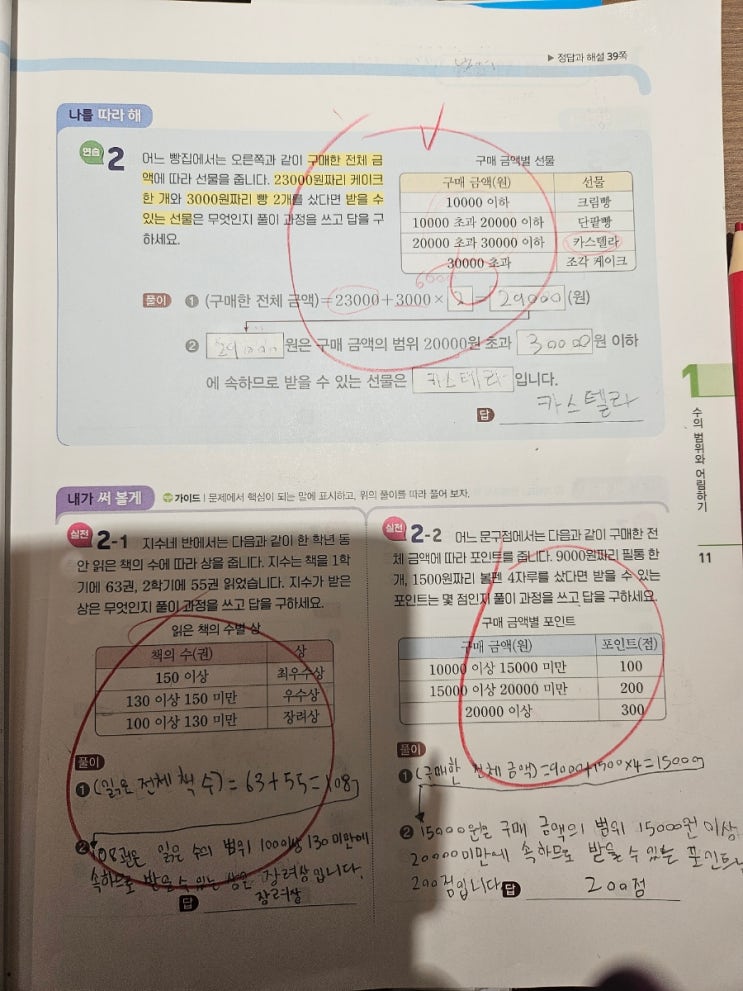 ▶ 정답과 해설 39쪽
나를 따라 해
연습 2
어느 빵집에서는 오른쪽과 같이 구매한 전체 금
액에 따라 선물을 줍니다. 23000원짜리 케이크
한 개와 3000원짜리 빵 2개를 샀다면 받을 수
있는 선물은 무엇인지 풀이 과정을 쓰고 답을 구
하세요.
구매 금액별 선물
구매 금액(원) 선물
10000 이하 크림빵
10000 초과 20000 이하 단팥빵
20000 초과 30000 이하 카스텔라
30000 초과 조각 케이크
6000
풀이 ❶ (구매한 전체 금액)=23000+3000×2=29000(원)
❷ 29000원은 구매 금액의 범위 20000원 초과 30000원 이하
에 속하므로 받을 수 있는 선물은 카스테라입니다.
답 카스텔라
1
수의 범위와 어림하기
11
내가 써 볼게
가이드 | 문제에서 핵심이 되는 말에 표시하고, 위의 풀이를 따라 풀어 보자.
실전 2-1 지수네 반에서는 다음과 같이 한 학년 동
안 읽은 책의 수에 따라 상을 줍니다. 지수는 책을 1학
기에 63권, 2학기에 55권 읽었습니다. 지수가 받은
상은 무엇인지 풀이 과정을 쓰고 답을 구하세요.
읽은 책의 수별 상
책의 수(권) 상
150 이상 최우수상
130 이상 150 미만 우수상
100 이상 130 미만 장려상
풀이
❶ (읽은 전체 책 수)=63+55=108
❷ 108권은 읽은 수의 범위 100이상 130미만에
속하므로 받을 수 있는 상은 장려상입니다.
답 장려상
실전 2-2 어느 문구점에서는 다음과 같이 구매한 전
체 금액에 따라 포인트를 줍니다. 9000원짜리 필통 한
개, 1500원짜리 볼펜 4자루를 샀다면 받을 수 있는
포인트는 몇 점인지 풀이 과정을 쓰고 답을 구하세요.
구매 금액별 포인트
구매 금액(원) 포인트(점)
10000 이상 15000 미만 100
15000 이상 20000 미만 200
20000 이상 300
풀이
❶ (구매한 전체 금액)=9000+1500×4=15000
❷ 15000원은 구매 금액의 범위 15000원 이상
20000미만에 속하므로 받을 수 있는 포인트는
200점입니다.
답 200점